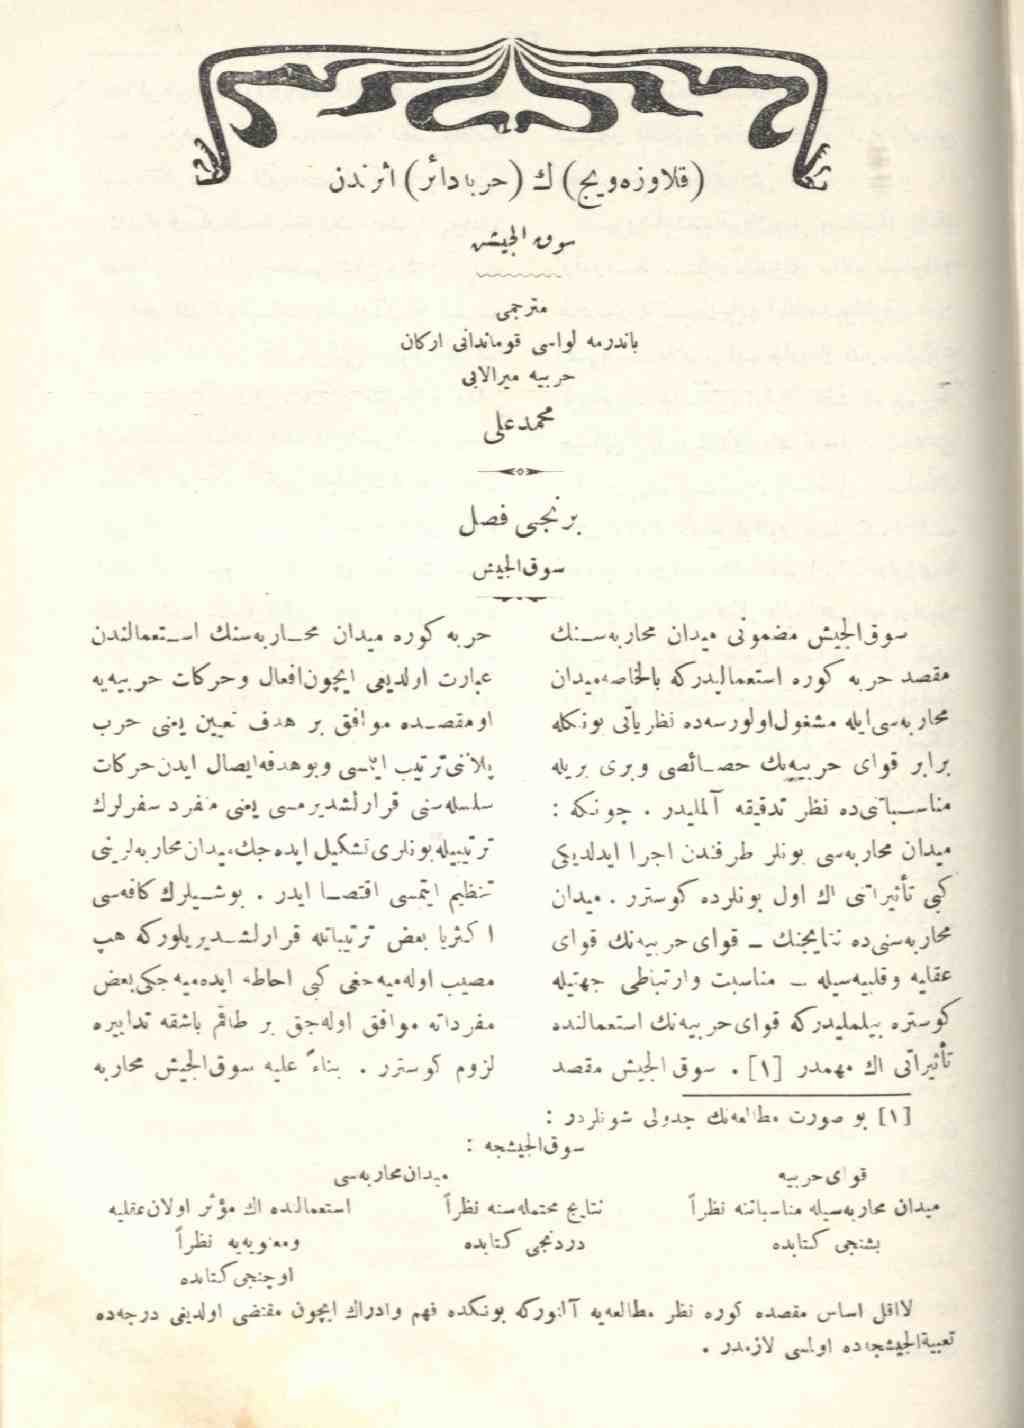 (قلاوزه‌ویج) ك (حربا دائر) اثرندن
سوق الجیش
مترجمی
باندرمه لواسی قوماندانی ارکان
حربیه میرالایی
محمد علی
برنجی فصل
سوق‌الجیش
سوق‌الجیش مضمونی میدان محاربه‌سنك
مقصد حربه کوره استعمالیدرکه بالخاصه میدان
محاربه‌سی‌ایله مشغول‌اولورسه‌ده نظریاتی بونکله
برابر قوای حربیه‌نك حصائصی و بری بریله
مناسباتی‌ده نظر تدقیقه آلملیدر . چونکه :
میدان محاربه‌سی بونلر طرفندن اجرا ایدلدیکی
کبی تأثیراتنی اك اول بونلرده کوسترر . میدان
محاربه‌سنی‌ده نتایجنك ـ قوای حربیه‌نك قوای
عقلیه و قلبیه‌سیله ـ مناسبت و ارتباطی جهتیله
کوستره بیلملیدرکه قوای حربیه‌نك استعمالنده
تأثیراتی اك مهمدر [١] . سوق الجیش مقصد
حربه کوره میدان محاربه‌سنك استعمالندن
عبارت اولدیغی ایچون افعال و حرکات حربیه‌یه
او مقصده موافق بر هدف تعیین یعنی حرب
پلاننی ترتیب ایتمسی و بو هدفه ایصال ایدن حرکات
سلسله‌سنی قرارلشدیرمسی یعنی منفرد سفرلرك
ترتیبیله بونلری تشکیل ایده‌جك میدان محاربه‌لرینی
تنظیم ایتمسی اقتضا ایدر . بوشیلرك کافه‌سی
اکثریا بعض ترتیباتله قرارلشدیریلورکه هپ
مصیب اوله‌میه‌جغی کبی احاطه ایده‌میه‌جکی بعض
مفرداته موافق اوله‌جق بر طاقم باشقه تدابیره
لزوم کوسترر . بناءً علیه سوق‌الجیش محاربه
[١] بو صورت مطالعه‌نك جدولی شونلردر :
سوق‌الجیشجه :
قوای حربیه
میدان محاربه‌سی
میدان محاربه‌سیله مناسباتنه نظراً
نتایج محتمله‌سنه نظراً
استعمالنده اك مؤثر اولان عقلیه
بشنجی کتابده
دردنجی کتابده
و معنویه‌یه نظراً
اوچنجی کتابده
لااقل اساس مقصده کوره نظر مطالعه‌یه آلنورکه بونکده فهم و ادراك ایچون مقتضی اولدیغی درجه‌ده
تعبیةالجیشجه‌ده اولمسی لازمدر .